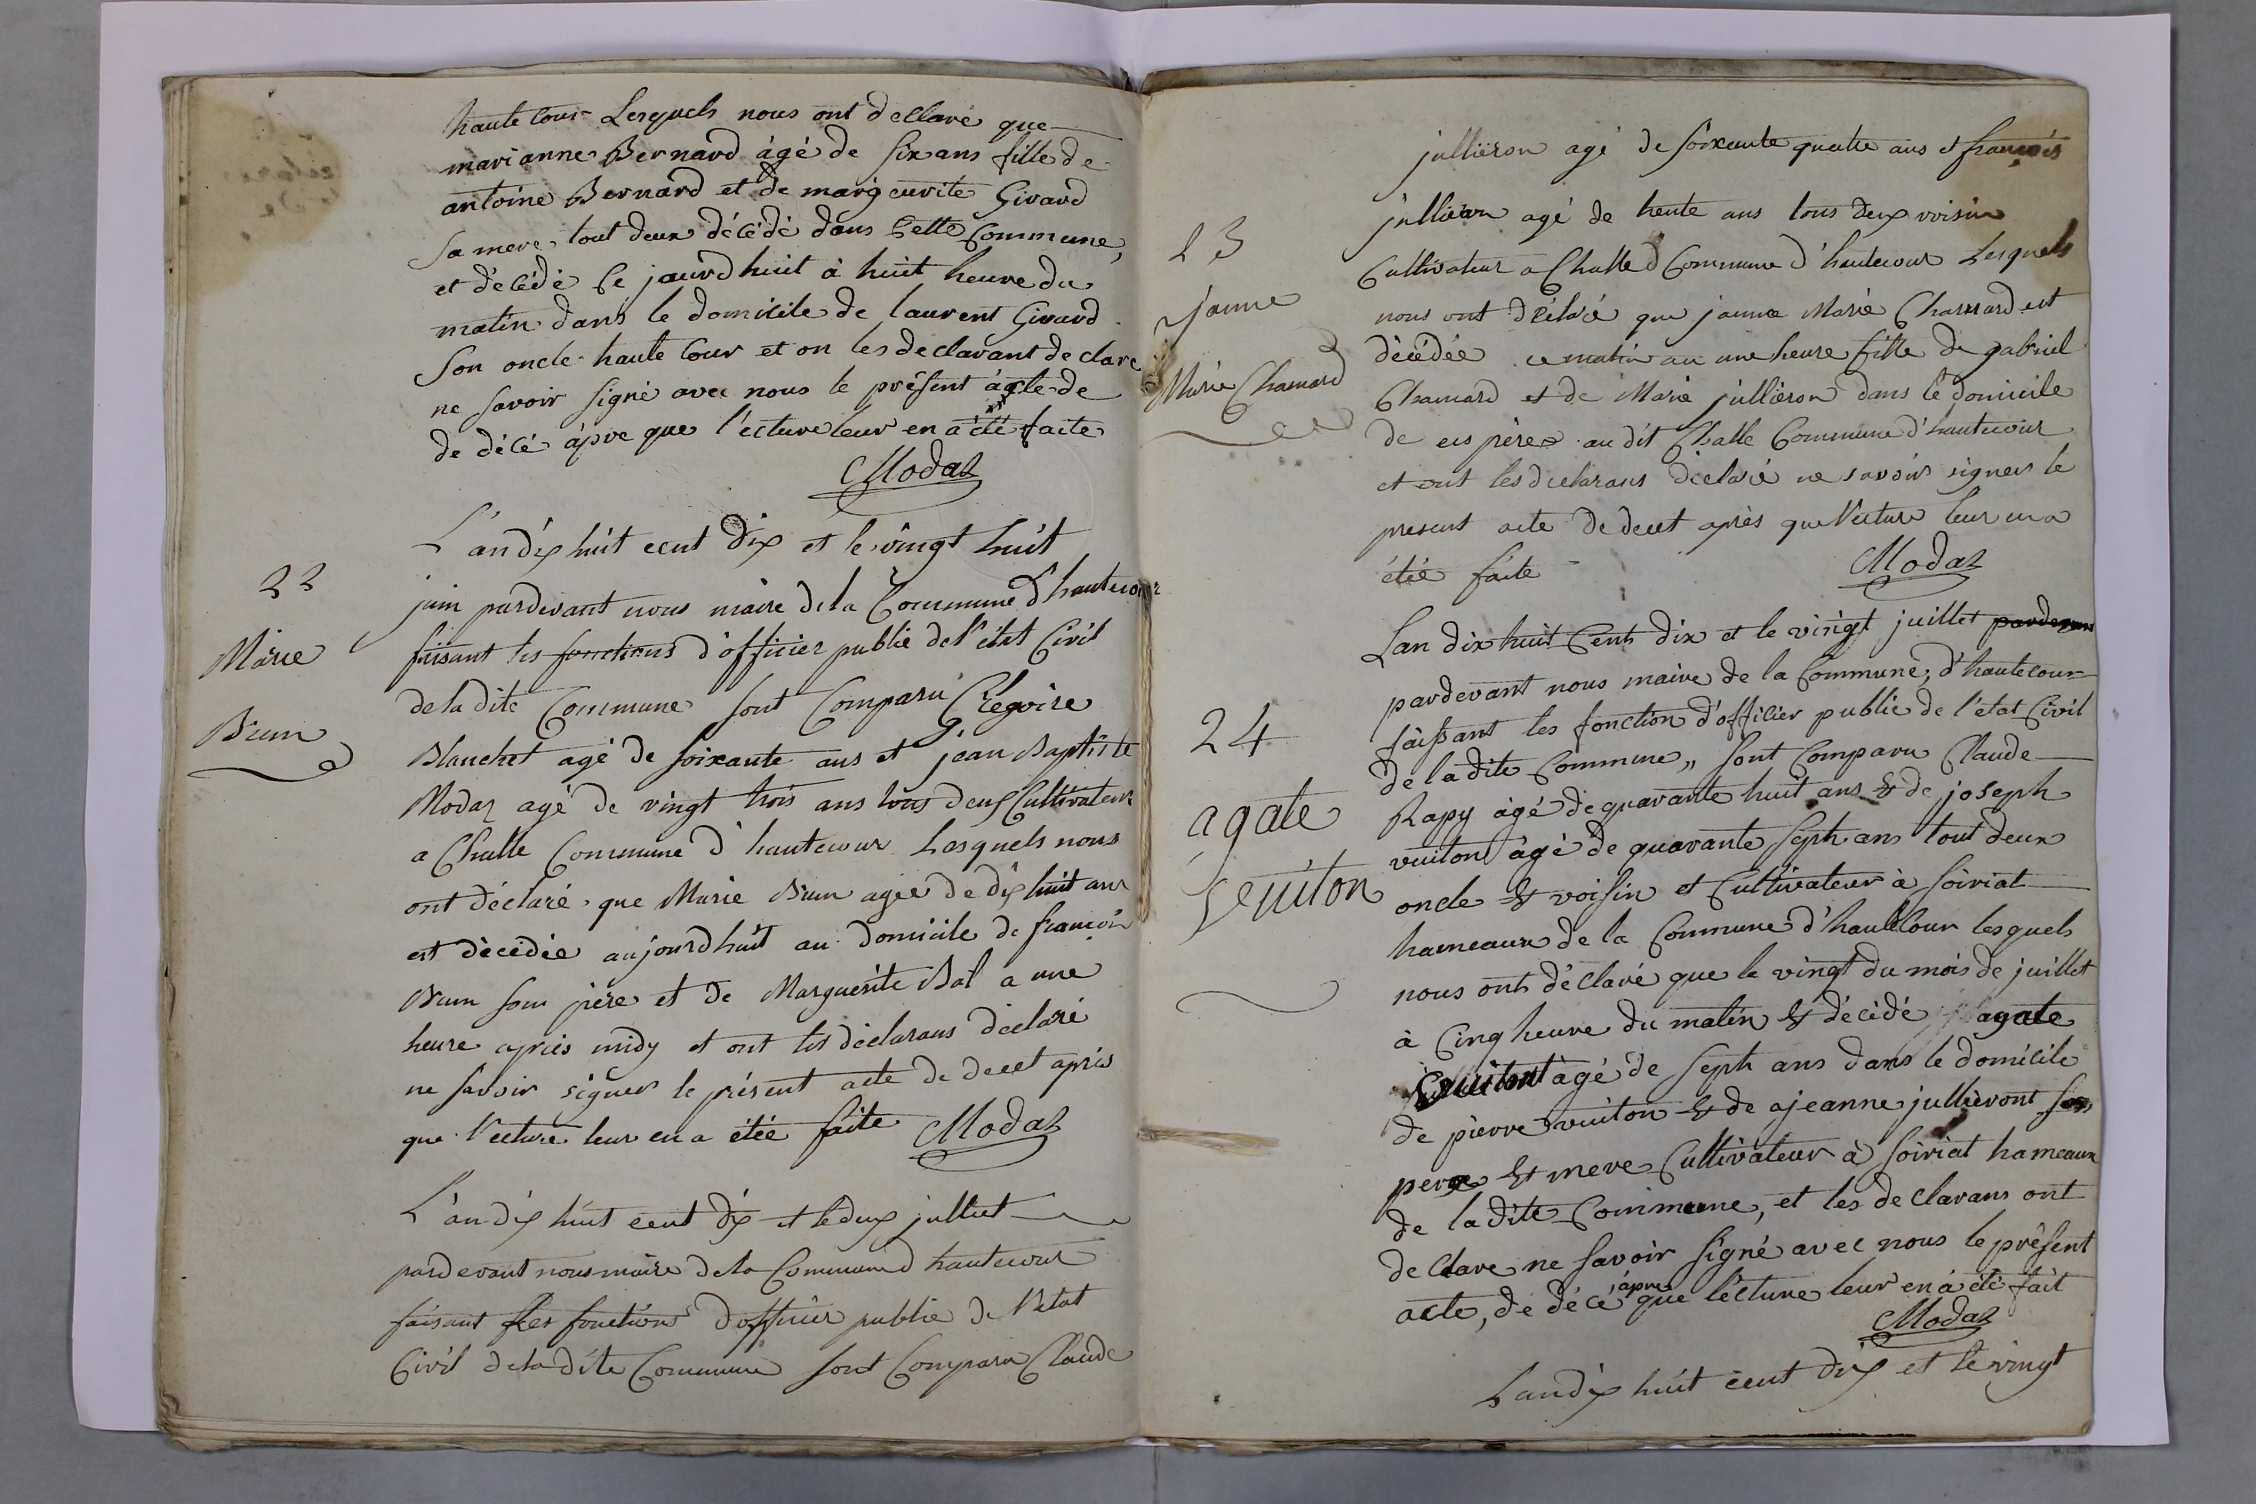 haute Cour Lesquels nous ont dellaré que
marianne Bernard âgé de six ans fille de
antoine Bernard et de margeurite Girard
sa mere tout deux décédé dans Cette Commune,
et décédé Ce jourdhuit à huit heure du
matin dans le domicile de laurent Girard
son oncle haute Cour et on les declarant declare
ne savoir signé avec nous le présent acte de
de décé âpre que l'ecture leur en a été faite
CModaz
22
Marie
Brun
L'an dix huit cent dix et le vingt huit
juin pardevant nous maire de la Commune d'hautecour
faisant les fonctions d'officier public de l'état Civil
de la dite Commune sont Comparu Grégoire
Blanchet agé de soixante ans et jean Baptiste
Modaz agé de vingt trois ans tous deux Cultivateur
a Challe Commune d'hautecour Lesquels nous
ont déclaré que Marie Brun agée de dix huit ans
est dècédée aujourdhuit au domicile de françois
Brun son père et de Marguerite Bal a une
heure après midy et ont les déclarans déclaré
ne savoir signer le présent acte de decet après
que lecture leur en a étée faite CModaz
L'an dix huit cent dix et le deux julliet
pardevant nous maire de la Commune d'hautecour
faisant les fonctions d'officier public de l'etat
Civil de la dite Commune sont Comparu Claude
23
Janne
Marie Chamard
julliéron agé de soixante quatre ans et françois
julliéron agé de trente ans tous deux voisin
Cultivateur a Challe Commune d'hautecour Lesquels
nous ont déclaré que janne Marie Chamard est
dècédée ce matin au une heure fille de gabriel
Chamard et de Marie julliéron dans le domicile
de ces père au dit Challe Commune d'hautecour
et ont les declarans déclaré ne savoir signer le
present acte de decet après que lecture leur en a
étée faite
CModaz
24
agate
Vuiton
Lan dix huit Cents dix et le vingt juillet pardevan
pardevant nous maire de la Commune, d'hautecour
faissant les fonction d'officier public de l'état Civil
de la dite Commune,, sont Comparu Claude
Rapy âgé de quarante huit ans & de joseph
vuiton âgé de quarante seph ans tout deux
oncle & voisin et Cultivateur à soiriat
hameaux de la Commune d'haute Cour lesquels
nous onts déclaré que le vingt du mois de juillet
à Cinq heure du matin & décédé agate
Vuiton âgé de seph ans dans le domicile
de pierre vuiton & de ajeanne jullieront ses
pere & mere Cultivateur à soiriat hameaux
de la dite Commune, et les declarans ont
declare ne savoir signé avec nous le présent
acte, de décé âpre que lécture leur en à été fait
CModaz
Lan dix huit cent dix et le vingt